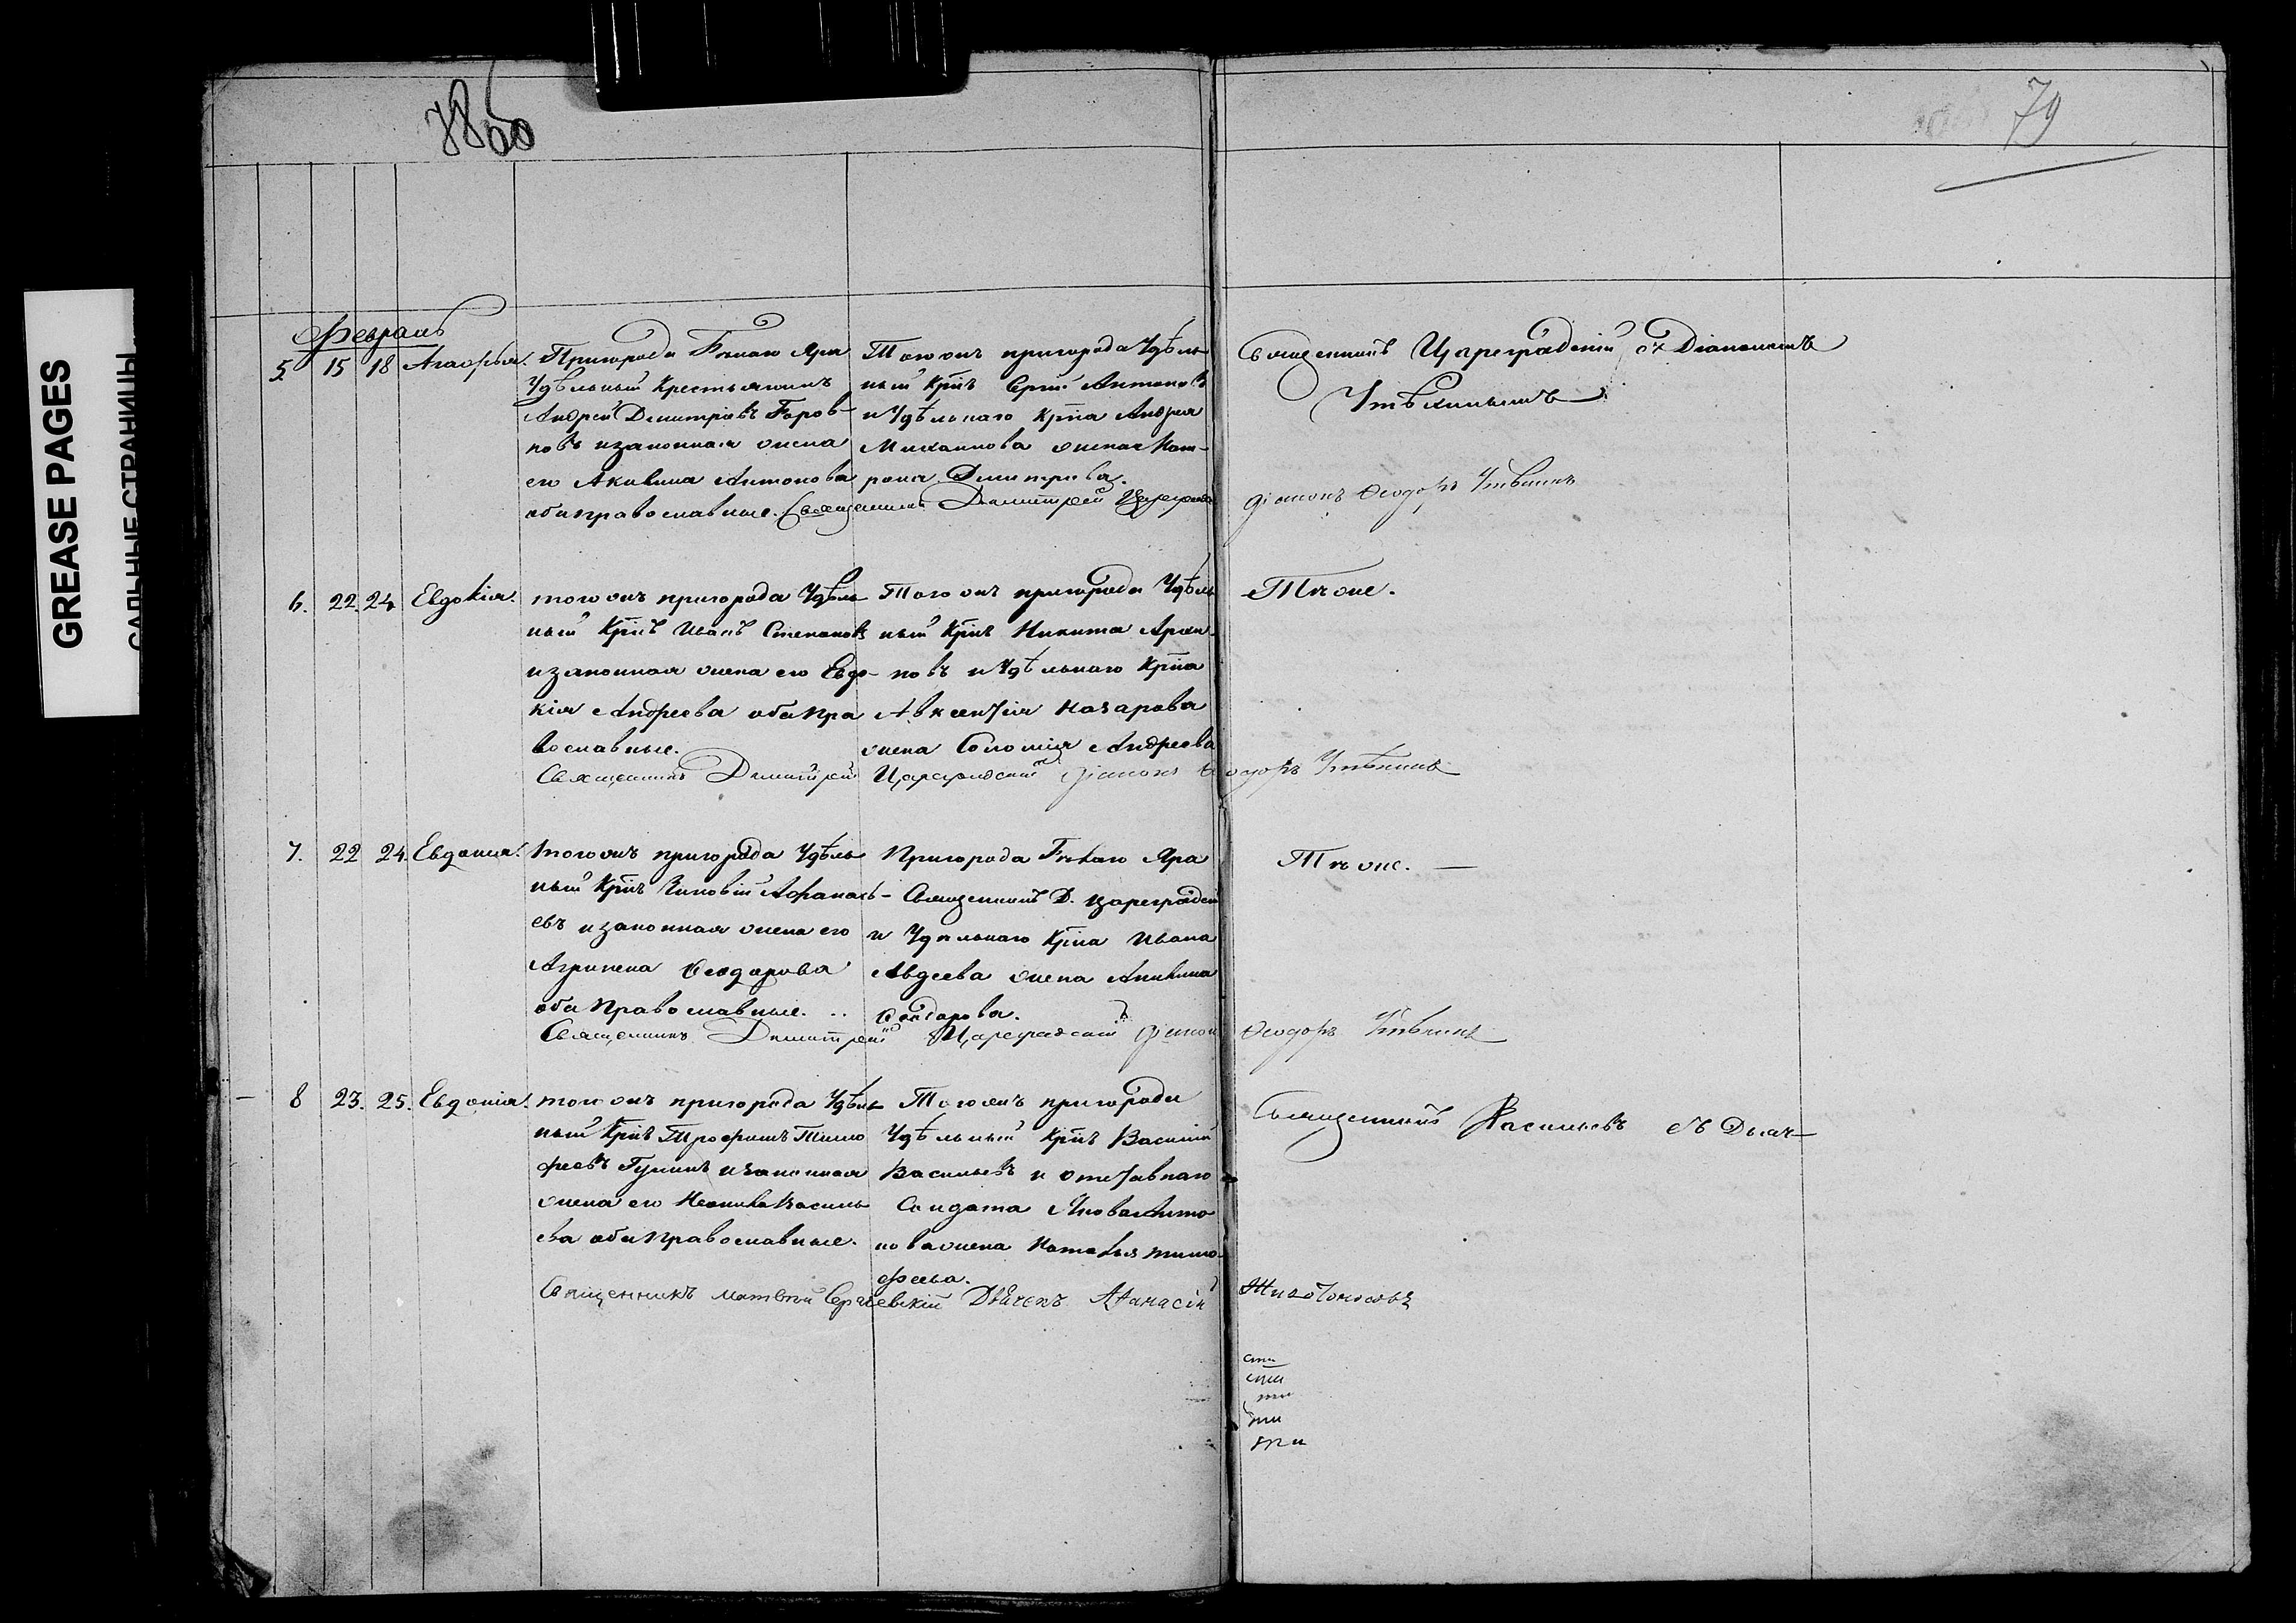 GREASE PAGES
САЛЬНЫЕ СТРАНИЦЫ
79
Февраль
5. 15 18 Агафья.
Пригорода Белаго Яра
Удѣльный Крестьянинъ
Андрей Димитріевъ
и законная жена
его Акилина Антонова
оба православные.
Тогожъ пригорода Удѣль
ный Кр̅нъ Сергѣй Антоновъ
и Удѣльнаго Кр̅на Андрея
Михаилова жена Мат-
рона Димитріева.
Священникъ Димитрей
Священникъ Цареградскій съ Діакономъ
Утѣхинымъ
діаконъ Ѳеодоръ Утѣхинъ
6. 22. 24 Евдокія.
тогожъ пригорода Удѣль
ный Кр̅нъ Иванъ Степановъ
и законная жена его Евдо-
кія Андреева оба пра
вославные.
Тогожъ пригорода Удѣль
ный Кр̅нъ Никита
новъ и Удѣльнаго Кр̅на
Авксентія Назарова
жена Соломія Андреева
Тѣже.
Священникъ Димитрей Цареградскій діаконъ Ѳеодоръ Утѣхинъ
7. 22 24. Евдокія.
тогожъ пригорода Удѣль
ный Кр̅нъ Зиновій Афанась-
евъ и законная жена его
Агрипена Ѳеодорова
оба Православные.
Пригорода Белаго Яра
Священникъ Д. Цареградскій
и Удѣльнаго Кр̅на Ивана
Авдеева жена Акилина
Ѳеодорова.
Тѣже. —
Священникъ Димитрей Цареградскій діаконъ Ѳеодоръ Утѣхинъ
8 23. 25. Евдокія.
тогожъ пригорода Удѣль
ный Кр̅нъ Трофимъ Тимо
феевъ и законная
жена его Неонила Василь
ева оба Православные.
Тогожъ пригорода
Удѣльный Кр̅нъ Василій
Васильевъ и отставнаго
Солдата Якова Анто
нова жена Наталья Тимо
феева.
Священникъ Васильевъ съ Дьяч—
Священникъ Матвѣй Сергіевскій Дьячекъ Афанасій